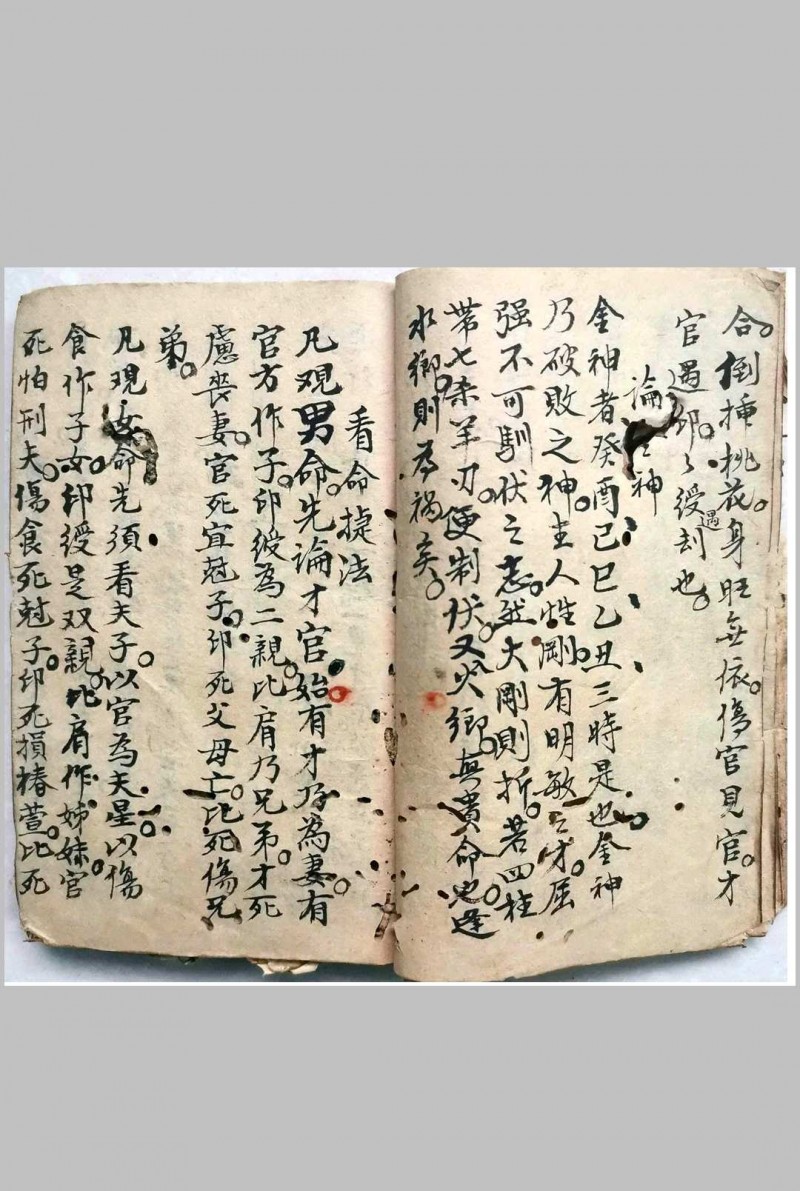 合。倒揷桃花。身旺無依。傷官見官。才
官遇卯。〻綬遇刦也。
論 神
金神者癸酉己巳乙丑三時是也金神
乃破敗之神。主人性剛。有明敏之才屈
强不可馴伏之志。然大剛則折。若四柱
帶七杀羊刃。便制伏。又火鄉。真貴命也。逢
水鄉。則為禍矣。
看命捷法
凡观男命。先論才官。始有才乃為妻。有
官方作子。卯綬為二親。比肩乃兄弟。才死
慮喪妻。官死宜尅子。卯死父母亡。比死傷兄
弟。
凡观女命先須看夫子。以官為夫星。以傷
食作子女。卯綬是双親。比肩作姊妹。官
死怕刑夫。傷食死尅子。卯死損椿萱。比死